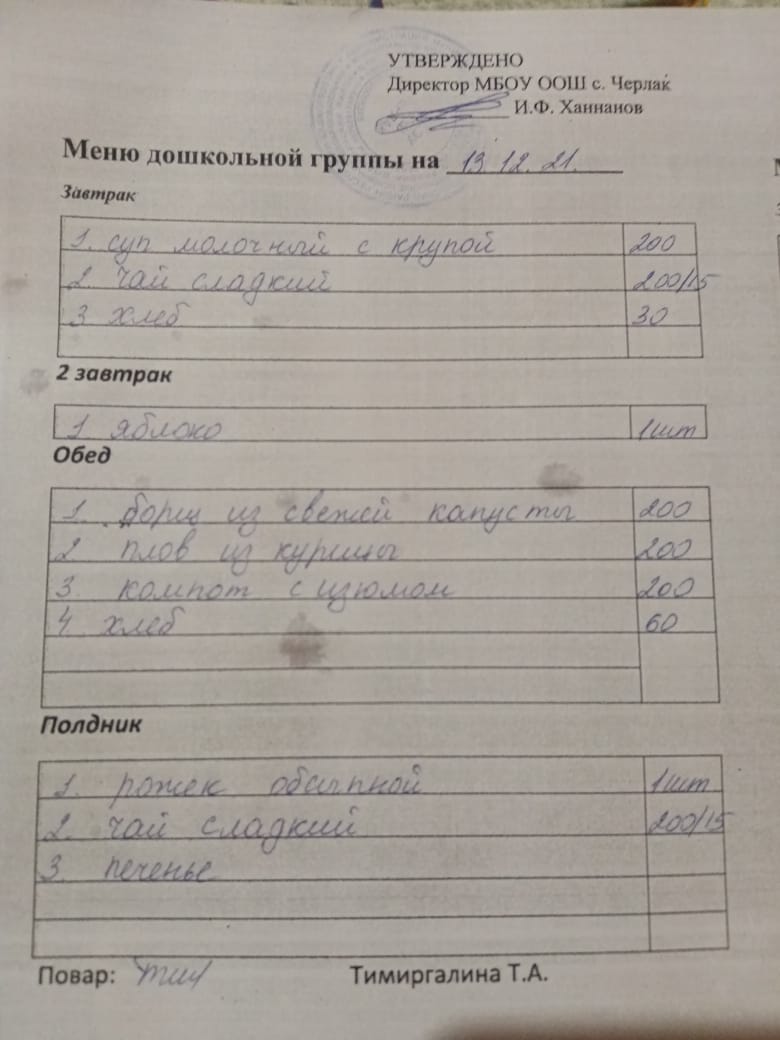 УТВЕРЖДЕНО
Директор МБОУ ООШ с. Черлак
И.Ф. Ханнанов
Меню дошкольной группы на 13.12.21.
Завтрак
1. суп молочный с крупой 200
2. чай сладкий 200/15
3 хлеб 30
2 завтрак
1 яблоко 1шт
Обед
1. борщ из свежей капусты 200
2 плов из курицы 200
3 компот с изюмом 200
4. хлеб 60
Полдник
1. рожек обычной 1шт
2. чай сладкий 200/15
3. печенье
Повар: Тимиргалина Т.А.